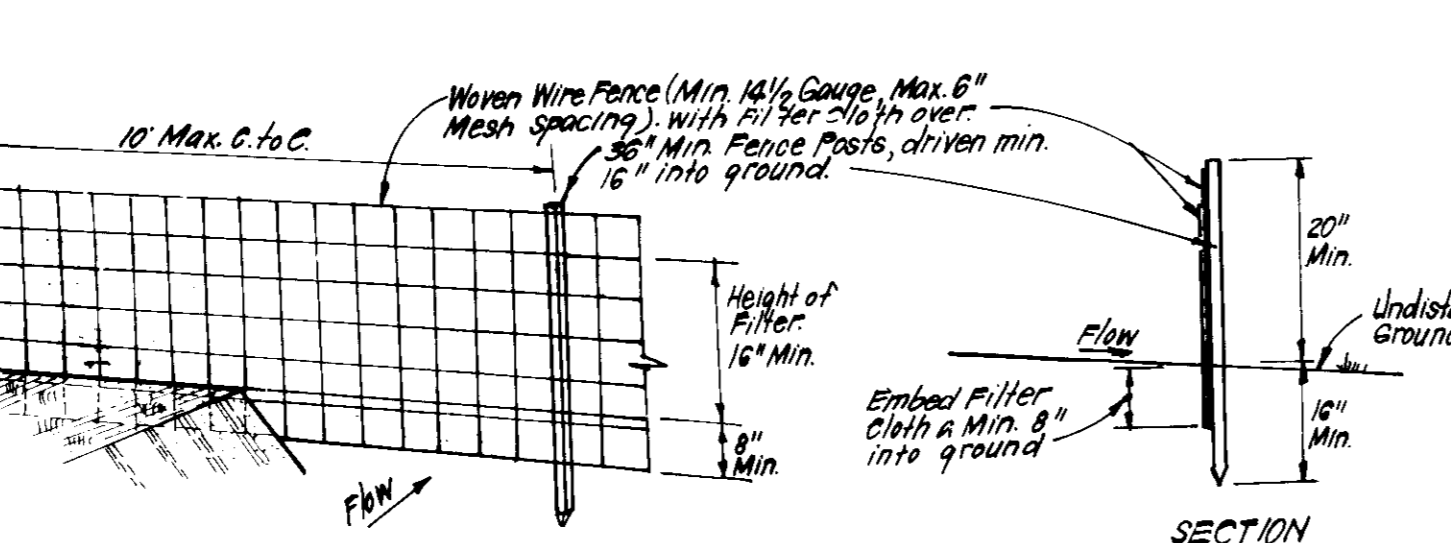 Woven Wire Fence (Min. 14 1/2 Gauge, Max. 6"
Mesh spacing). with Filter Cloth over.
10' Max. C. to C.
36" Min. Fence Posts, driven min.
16" into ground.
Height of
Filter.
16" Min.
8"
Min.
Flow
20"
Min.
Flow
Undist
Ground
Embed Filter
Cloth a Min. 8"
into ground
16"
Min.
SECTION